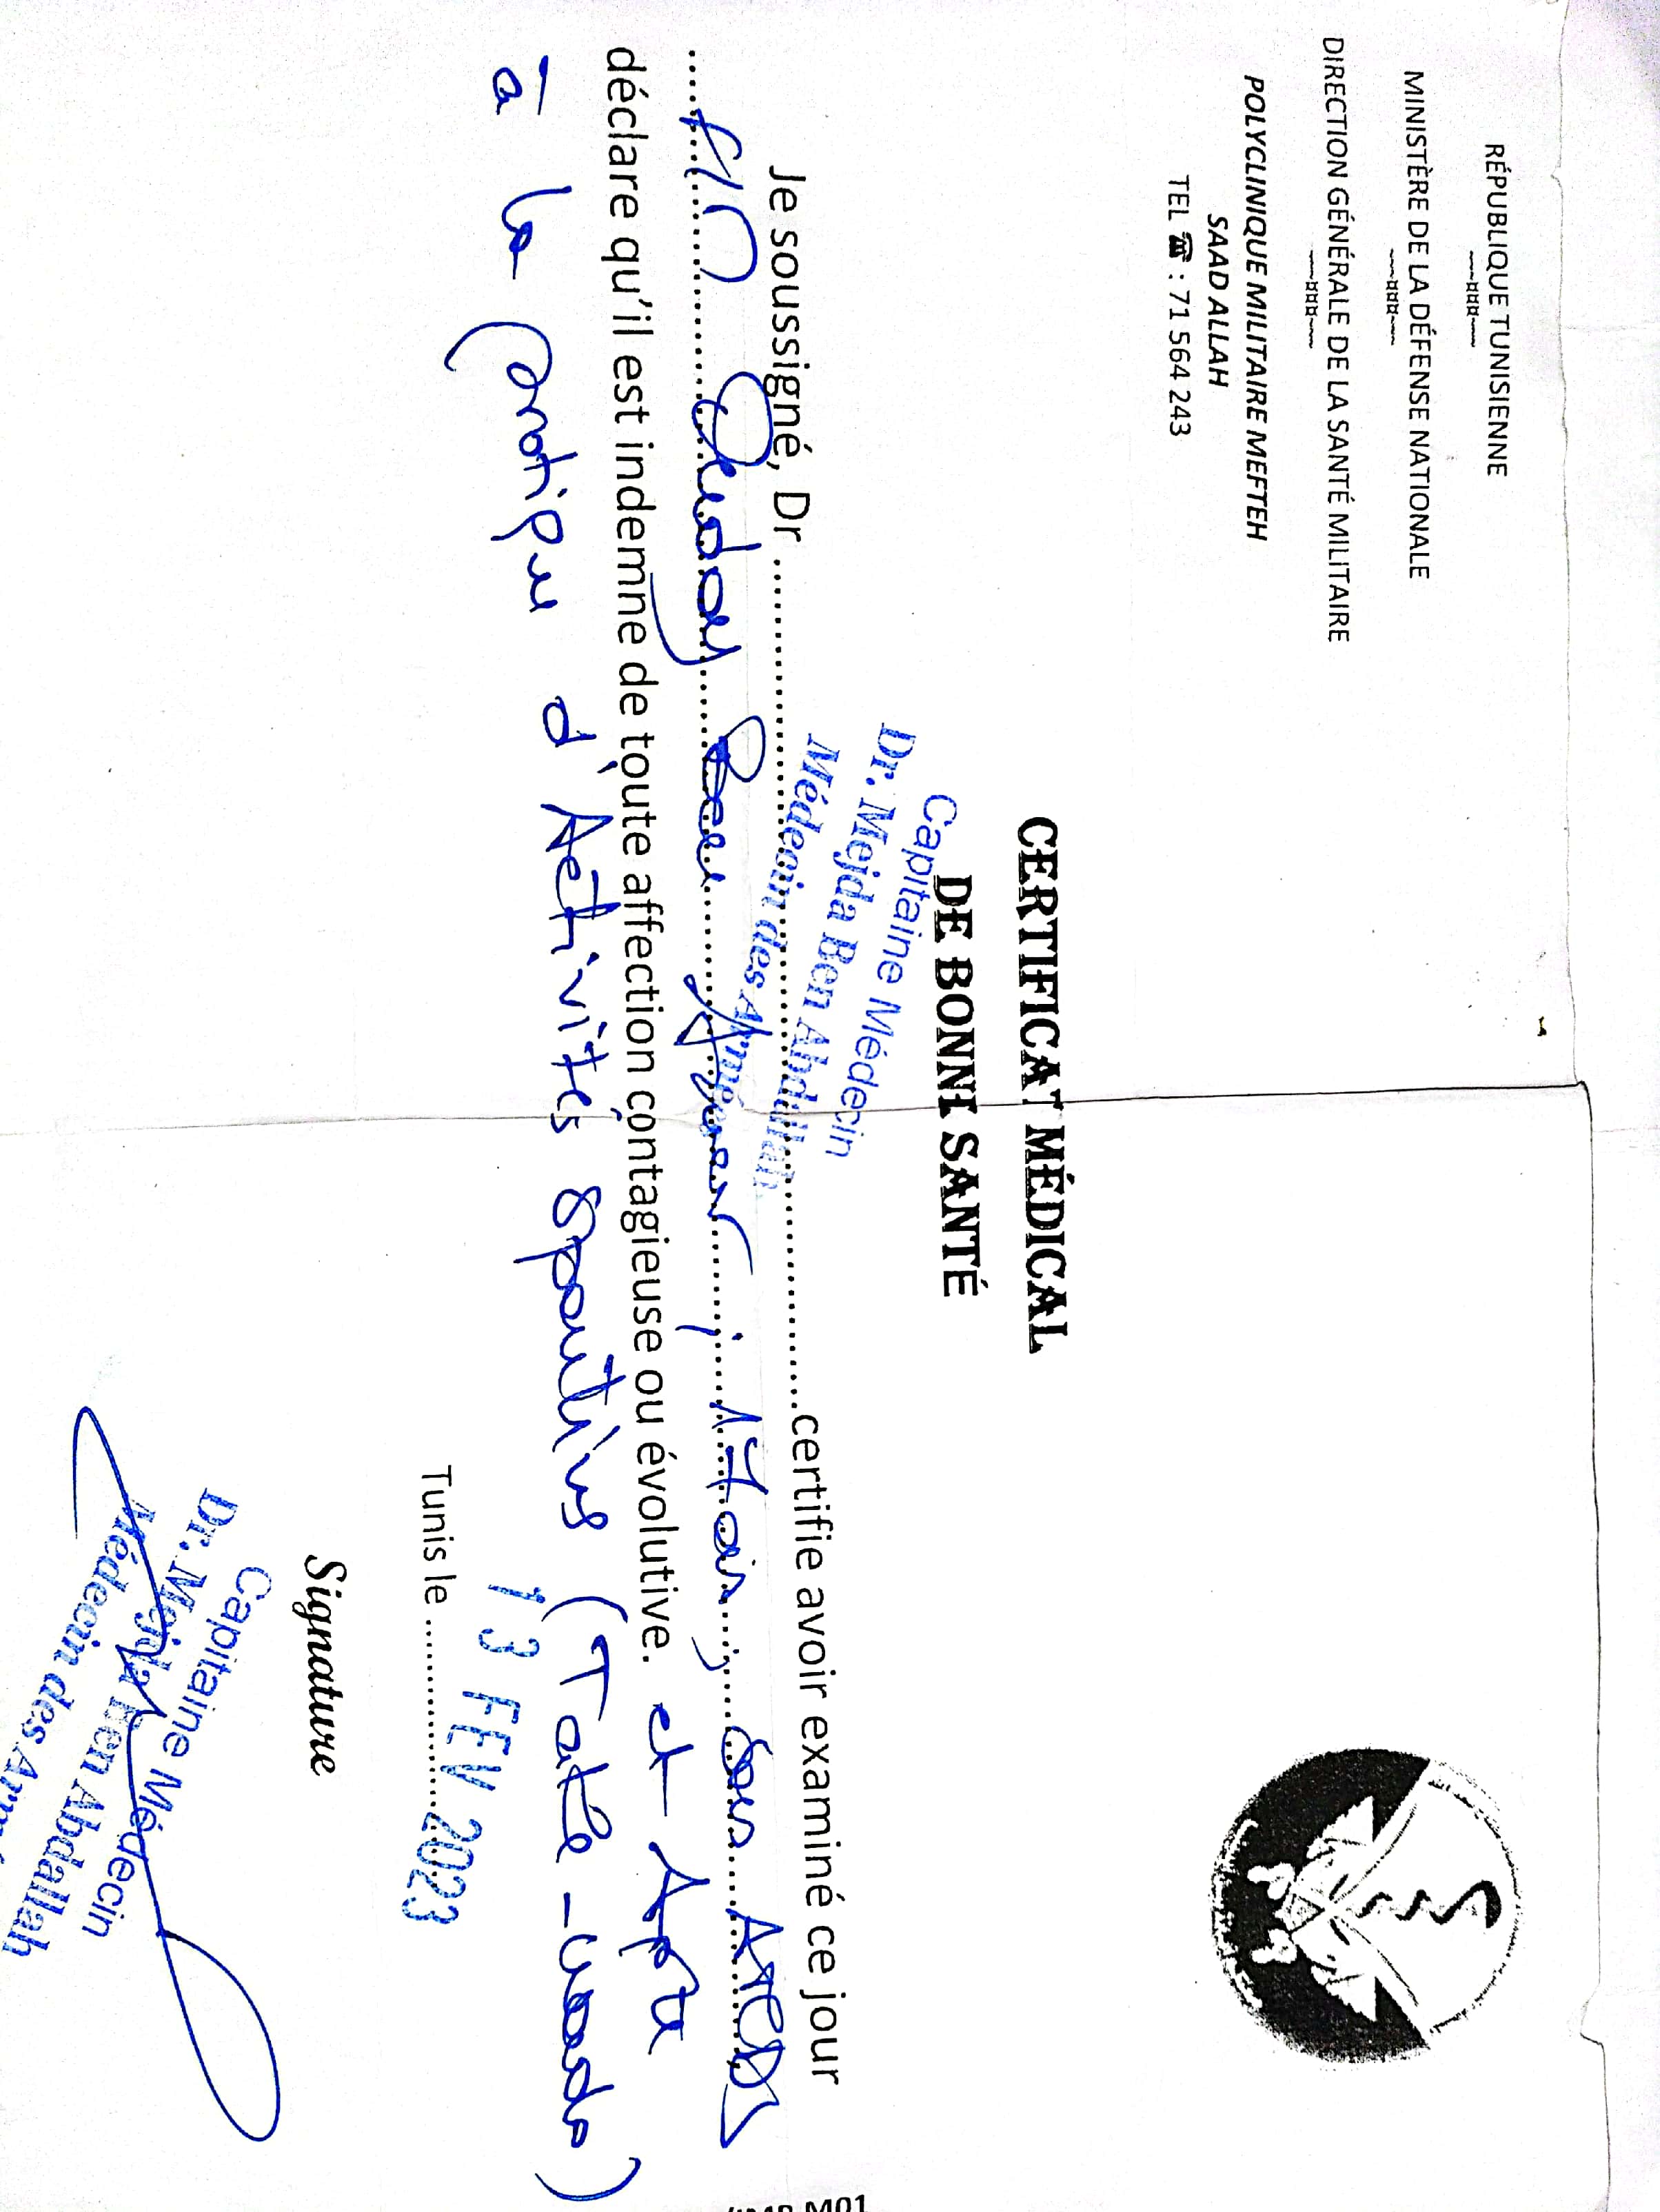 RÉPUBLIQUE TUNISIENNE
MINISTÈRE DE LA DÉFENSE NATIONALE
DIRECTION GÉNÉRALE DE LA SANTÉ MILITAIRE
POLYCLINIQUE MILITAIRE MEFTEH
SAAD ALLAH
TEL ☎ : 71 564 243
CERTIFICAT MÉDICAL
DE BONNE SANTÉ
Capitaine Médecin
Dr. Mejda Ben Abdallah
Médecin des Armées
Je soussigné, Dr ........ certifie avoir examiné ce jour
Ben 17 ans, sans ATCD
déclare qu'il est indemne de toute affection contagieuse ou évolutive. et Apte
à la pratique d'Activités sportives (
Tunis le ........ 13 FEV 2023
Signature
Capitaine Médecin
Dr. Mejda Ben Abdallah
Médecin des Arm
M01